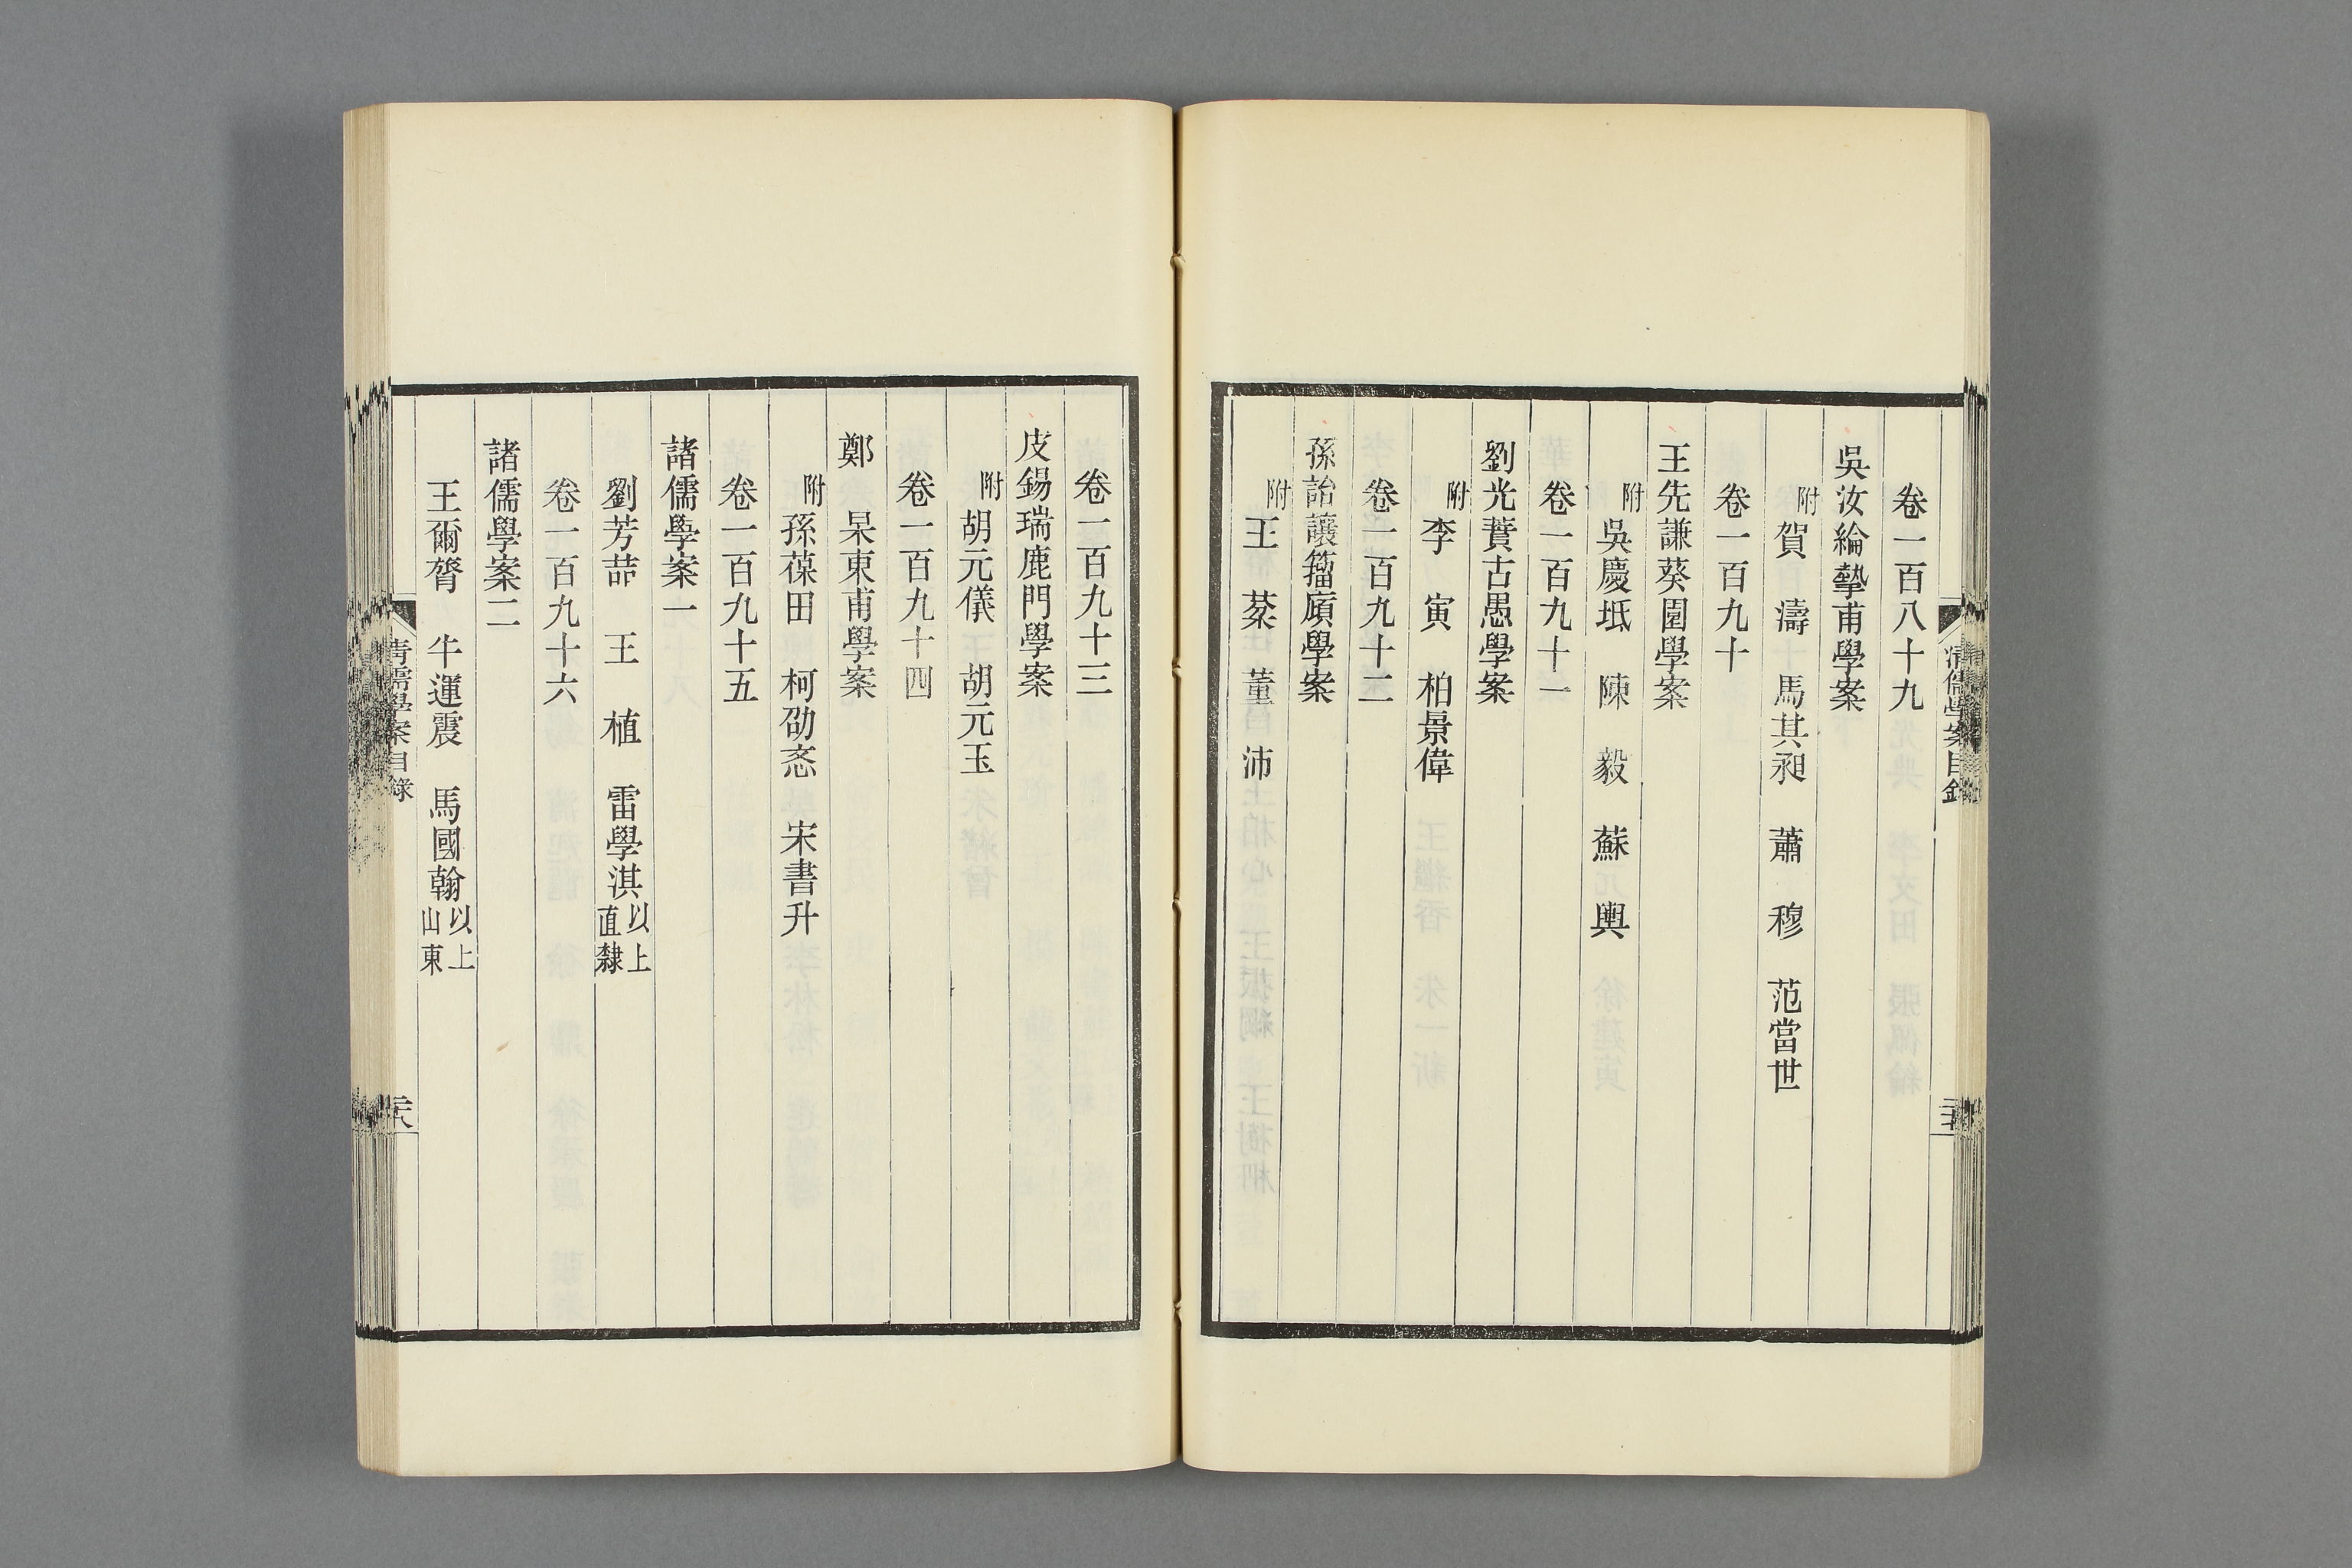 清儒學案目錄
卷一百八十九
吳汝綸摯甫學案
附賀　濤　馬其昶　蕭　穆　范當世
卷一百九十
王先謙葵園學案
附吳慶坻　陳　毅　蘇　輿
卷一百九十一
劉光蕡古愚學案
附李　寅　柏景偉
卷一百九十二
孫詒讓籀廎學案
附王　棻　董　沛
卷一百九十三
皮錫瑞鹿門學案
附胡元儀　胡元玉
卷一百九十四
鄭　杲東甫學案
附孫葆田　柯劭忞　宋書升
卷一百九十五
諸儒學案一
劉芳喆　王　植　雷學淇以上直隸
卷一百九十六
諸儒學案二
王爾膂　牛運震　馬國翰以上山東
清儒學案目錄